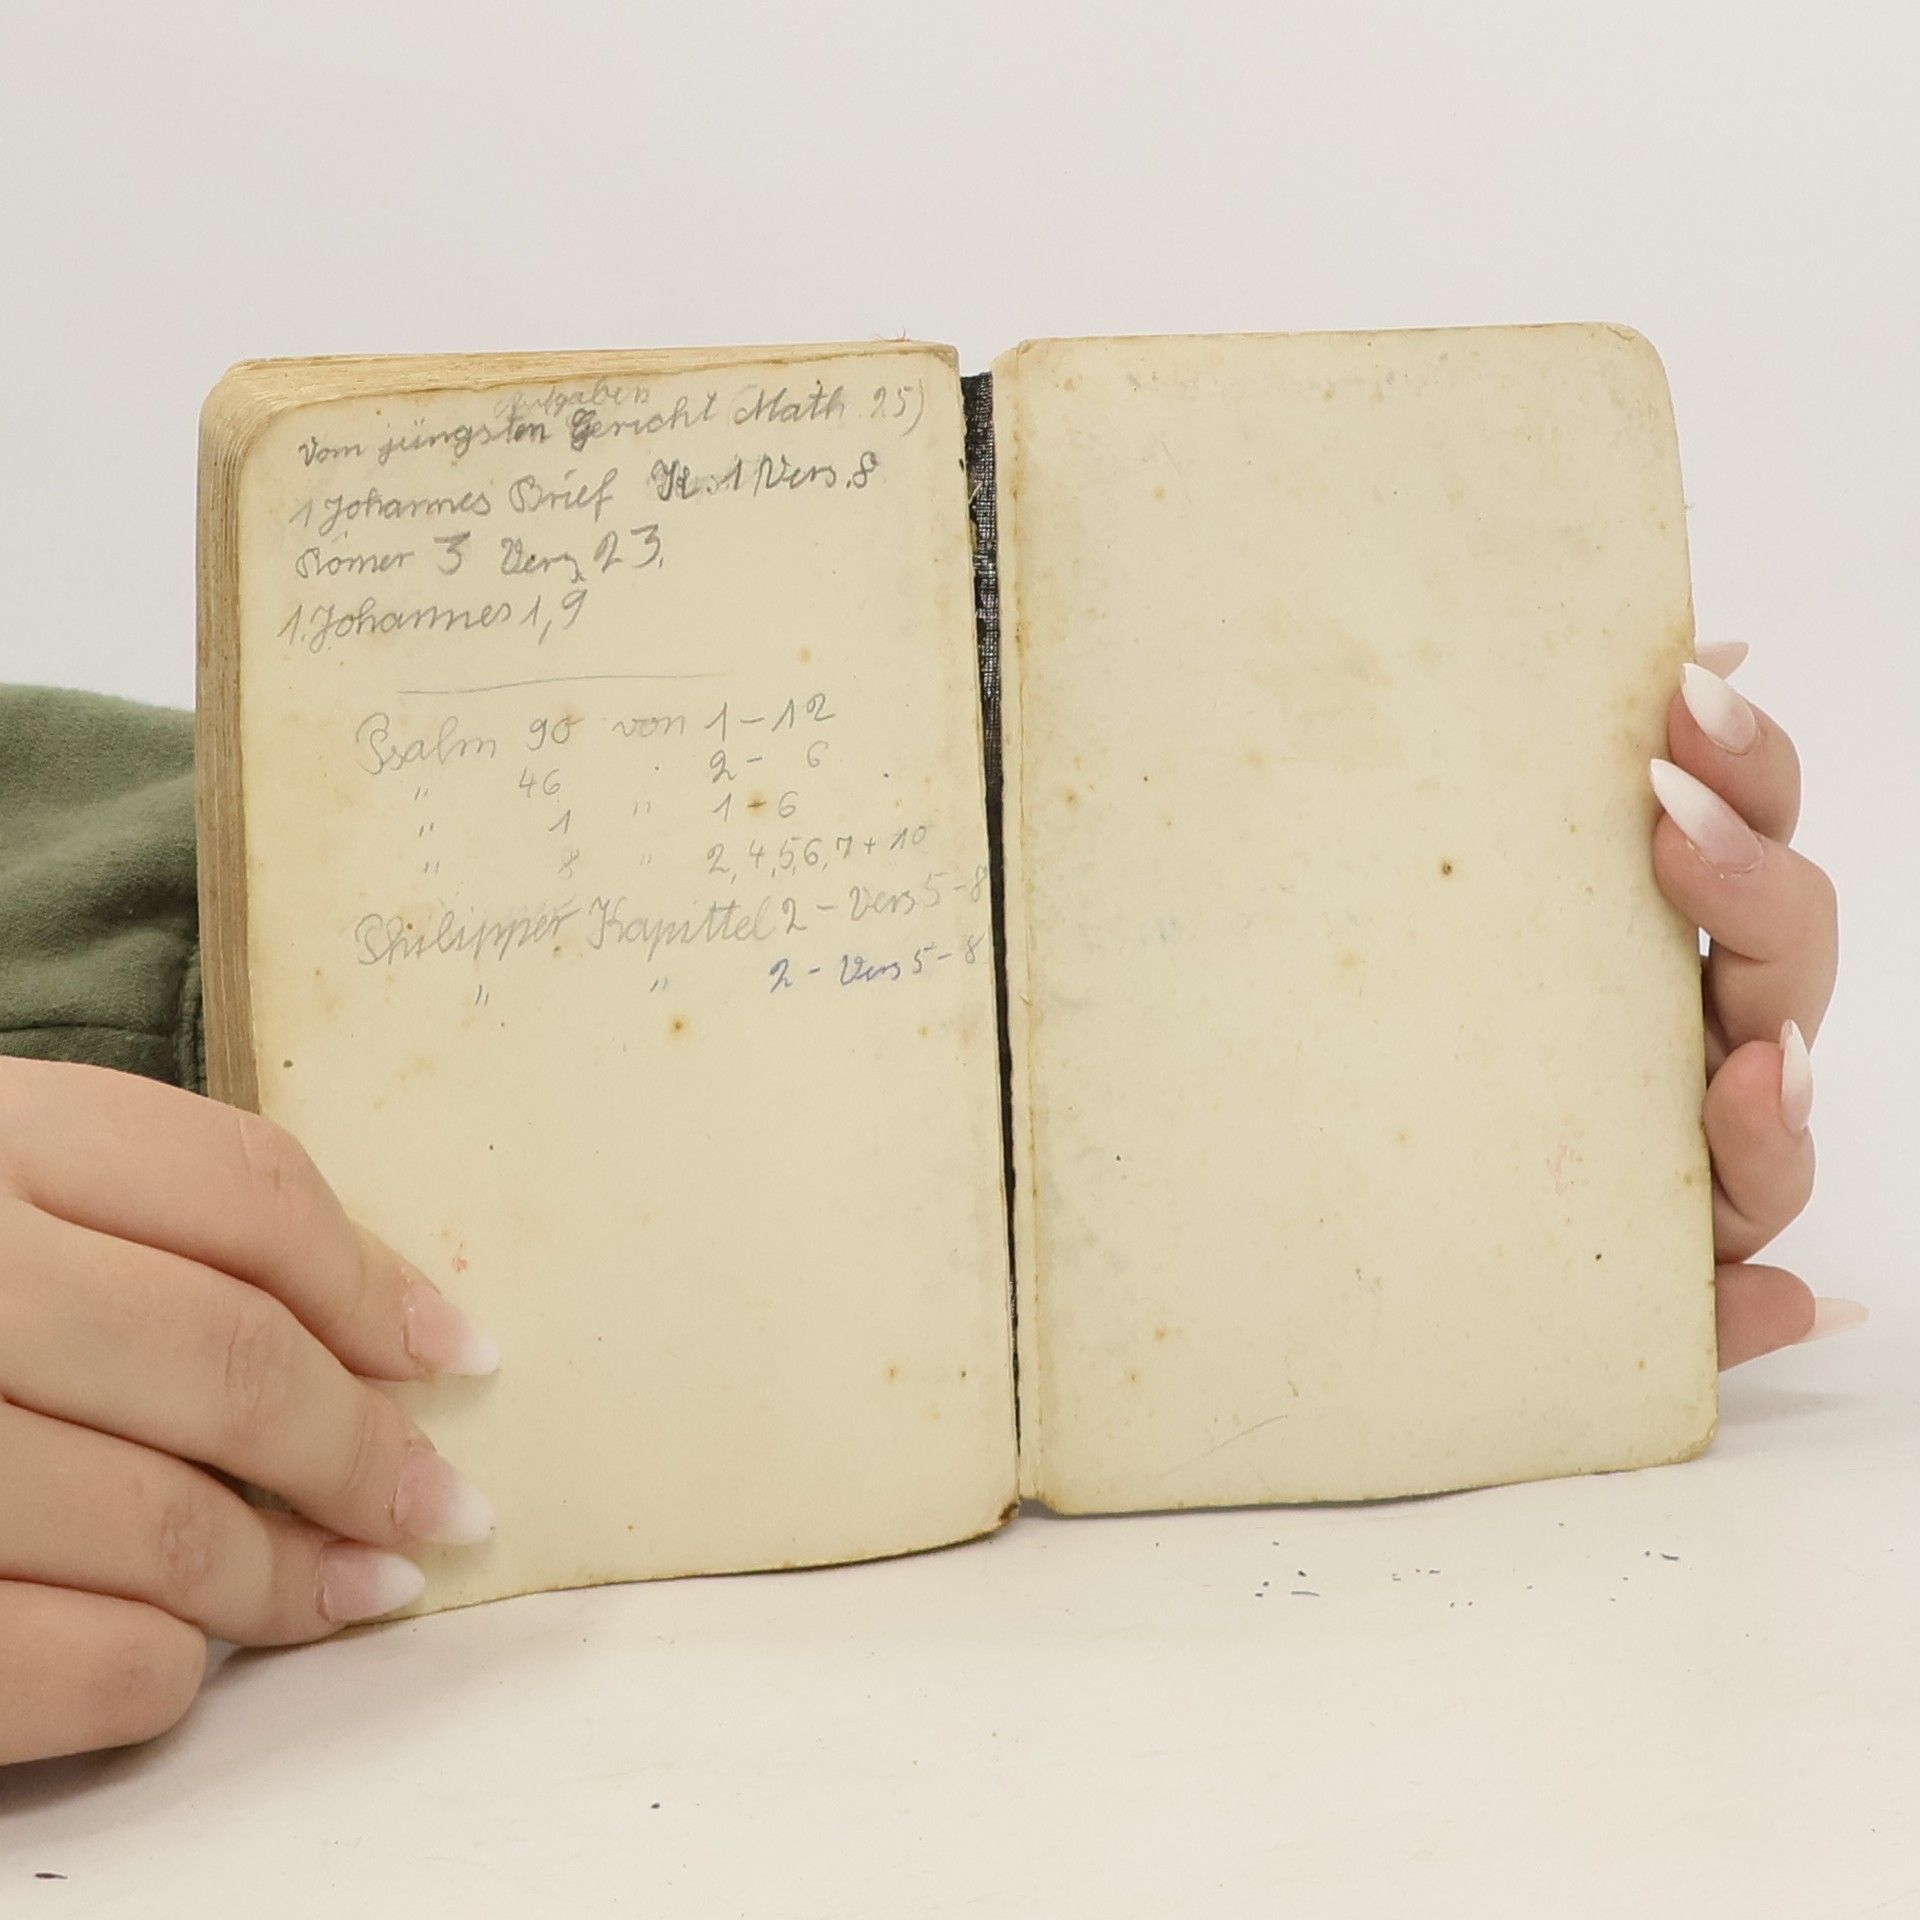 Aufgaben
Vom jüngsten Gericht (Math. 25)
1 Johannes Brief K. 1 Vers. 8
Römer 3 Vers 23.
1. Johannes 1,9
Psalm 90 von 1-12
" 46 " 2- 6.
" 1 " 1-6
" 8 " 2,4,5,6,7+10
Philipper Kapittel 2 - Vers 5-8
" " 2 - Vers 5-8